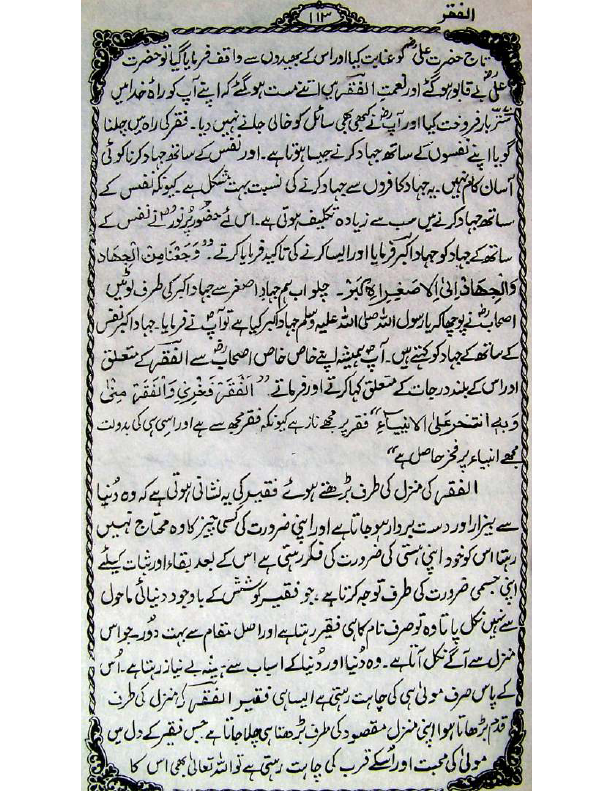 الفقر
۱۱۳
تاج حضرت علیؓ کو عنایت کیا اور اس کے بھیدوں سے واقف فرمایا گیا تو حضرت
علیؓ بے قابو ہو گئے اور نعمت الفقر میں اتنے مست ہو گئے کہ اپنے آپ کو راہ خدا میں
ستّر بار فروخت کیا اور آپؓ نے کبھی بھی سائل کو خالی جانے نہیں دیا۔ فقر کی راہ میں چلنا
گویا اپنے نفسوں کے ساتھ جہاد کرنے جیسا ہوتا ہے۔ اور نفس کے ساتھ جہاد کرنا کوئی
آسان کام نہیں۔ یہ جہاد کافروں سے جہاد کرنے کی نسبت بہت مشکل ہے کیونکہ نفس کے
ساتھ جہاد کرنے میں سب سے زیادہ تکلیف ہوتی ہے۔ اس لئے حضور پُر نورؐ نے نفس کے
ساتھ کے جہاد کو جہاد اکبر فرمایا اور ایسا کرنے کی تاکید فرمایا کرتے۔ "وَجَعْنَا مِنَ الْجِهَاد
وَالْجِهَادْ اِلیٰ الاَصْغِرِ اَلاکبَرْ۔ چلو اب ہم جہادِ اصغر سے جہاد اکبر کی طرف لوٹیں
اصحابؓ نے پوچھا کہ یا رسول اللہ صلی اللہ علیہ وسلم جہاد اکبر کیا ہے تو آپؐ نے فرمایا۔ جہاد اکبر نفس
کے ساتھ کے جہاد کو کہتے ہیں۔ آپؐ ہمیشہ اپنے خاص خاص اصحابؓ سے الفقر کے متعلق
اور اس کے بلند درجات کے متعلق کہا کرتے اور فرماتے۔ "اَلْفَقْرَ فَخْرِیْ وَالْفَقْرَ مِنّیٰ
وَبِهٖ افتخر عَلیٰ الانبیاءِ" فقر پر مجھے ناز ہے کیونکہ فقر مجھ سے ہے اور اسی ہی کی بدولت
مجھے انبیاء پر فخر حاصل ہے"
الفقر کی منزل کی طرف بڑھتے ہوئے فقیر کی یہ نشانی ہوتی ہے کہ وہ دُنیا
سے بیزار اور دست بردار ہو جاتا ہے اور اپنی ضرورت کی کسی چیز کا وہ محتاج نہیں
رہتا اس کو خود اپنی ہستی کی ضرورت کی فکر رہتی ہے اس کے بعد بقاء اور ثبات کیلئے
اپنی جسمی ضرورت کی طرف توجہ کرتا ہے۔ جو فقیر کوشش کے باوجود دنیائی ماحول
سے نہیں نکل پاتا وہ تو صرف نام کا ہی فقیر رہتا ہے اور اصل مقام سے بہت دُور۔ جو اس
منزل سے آگے نکل آتا ہے۔ وہ دُنیا اور دُنیا کے اسباب سے بے نیاز رہتا ہے۔ اُس
کے پاس صرف مولیٰ ہی کی چاہت رہتی ہے ایسا ہی فقیر الفقر کی منزل کی طرف
قدم بڑھاتا ہوا اپنی منزل مقصود کی طرف بڑھتا ہی چلا جاتا ہے۔ جس فقیر کے دل میں
مولیٰ کی محبت اور اُسکے قرب کی چاہت رہتی ہے تو اللہ تعالیٰ بھی اس کا